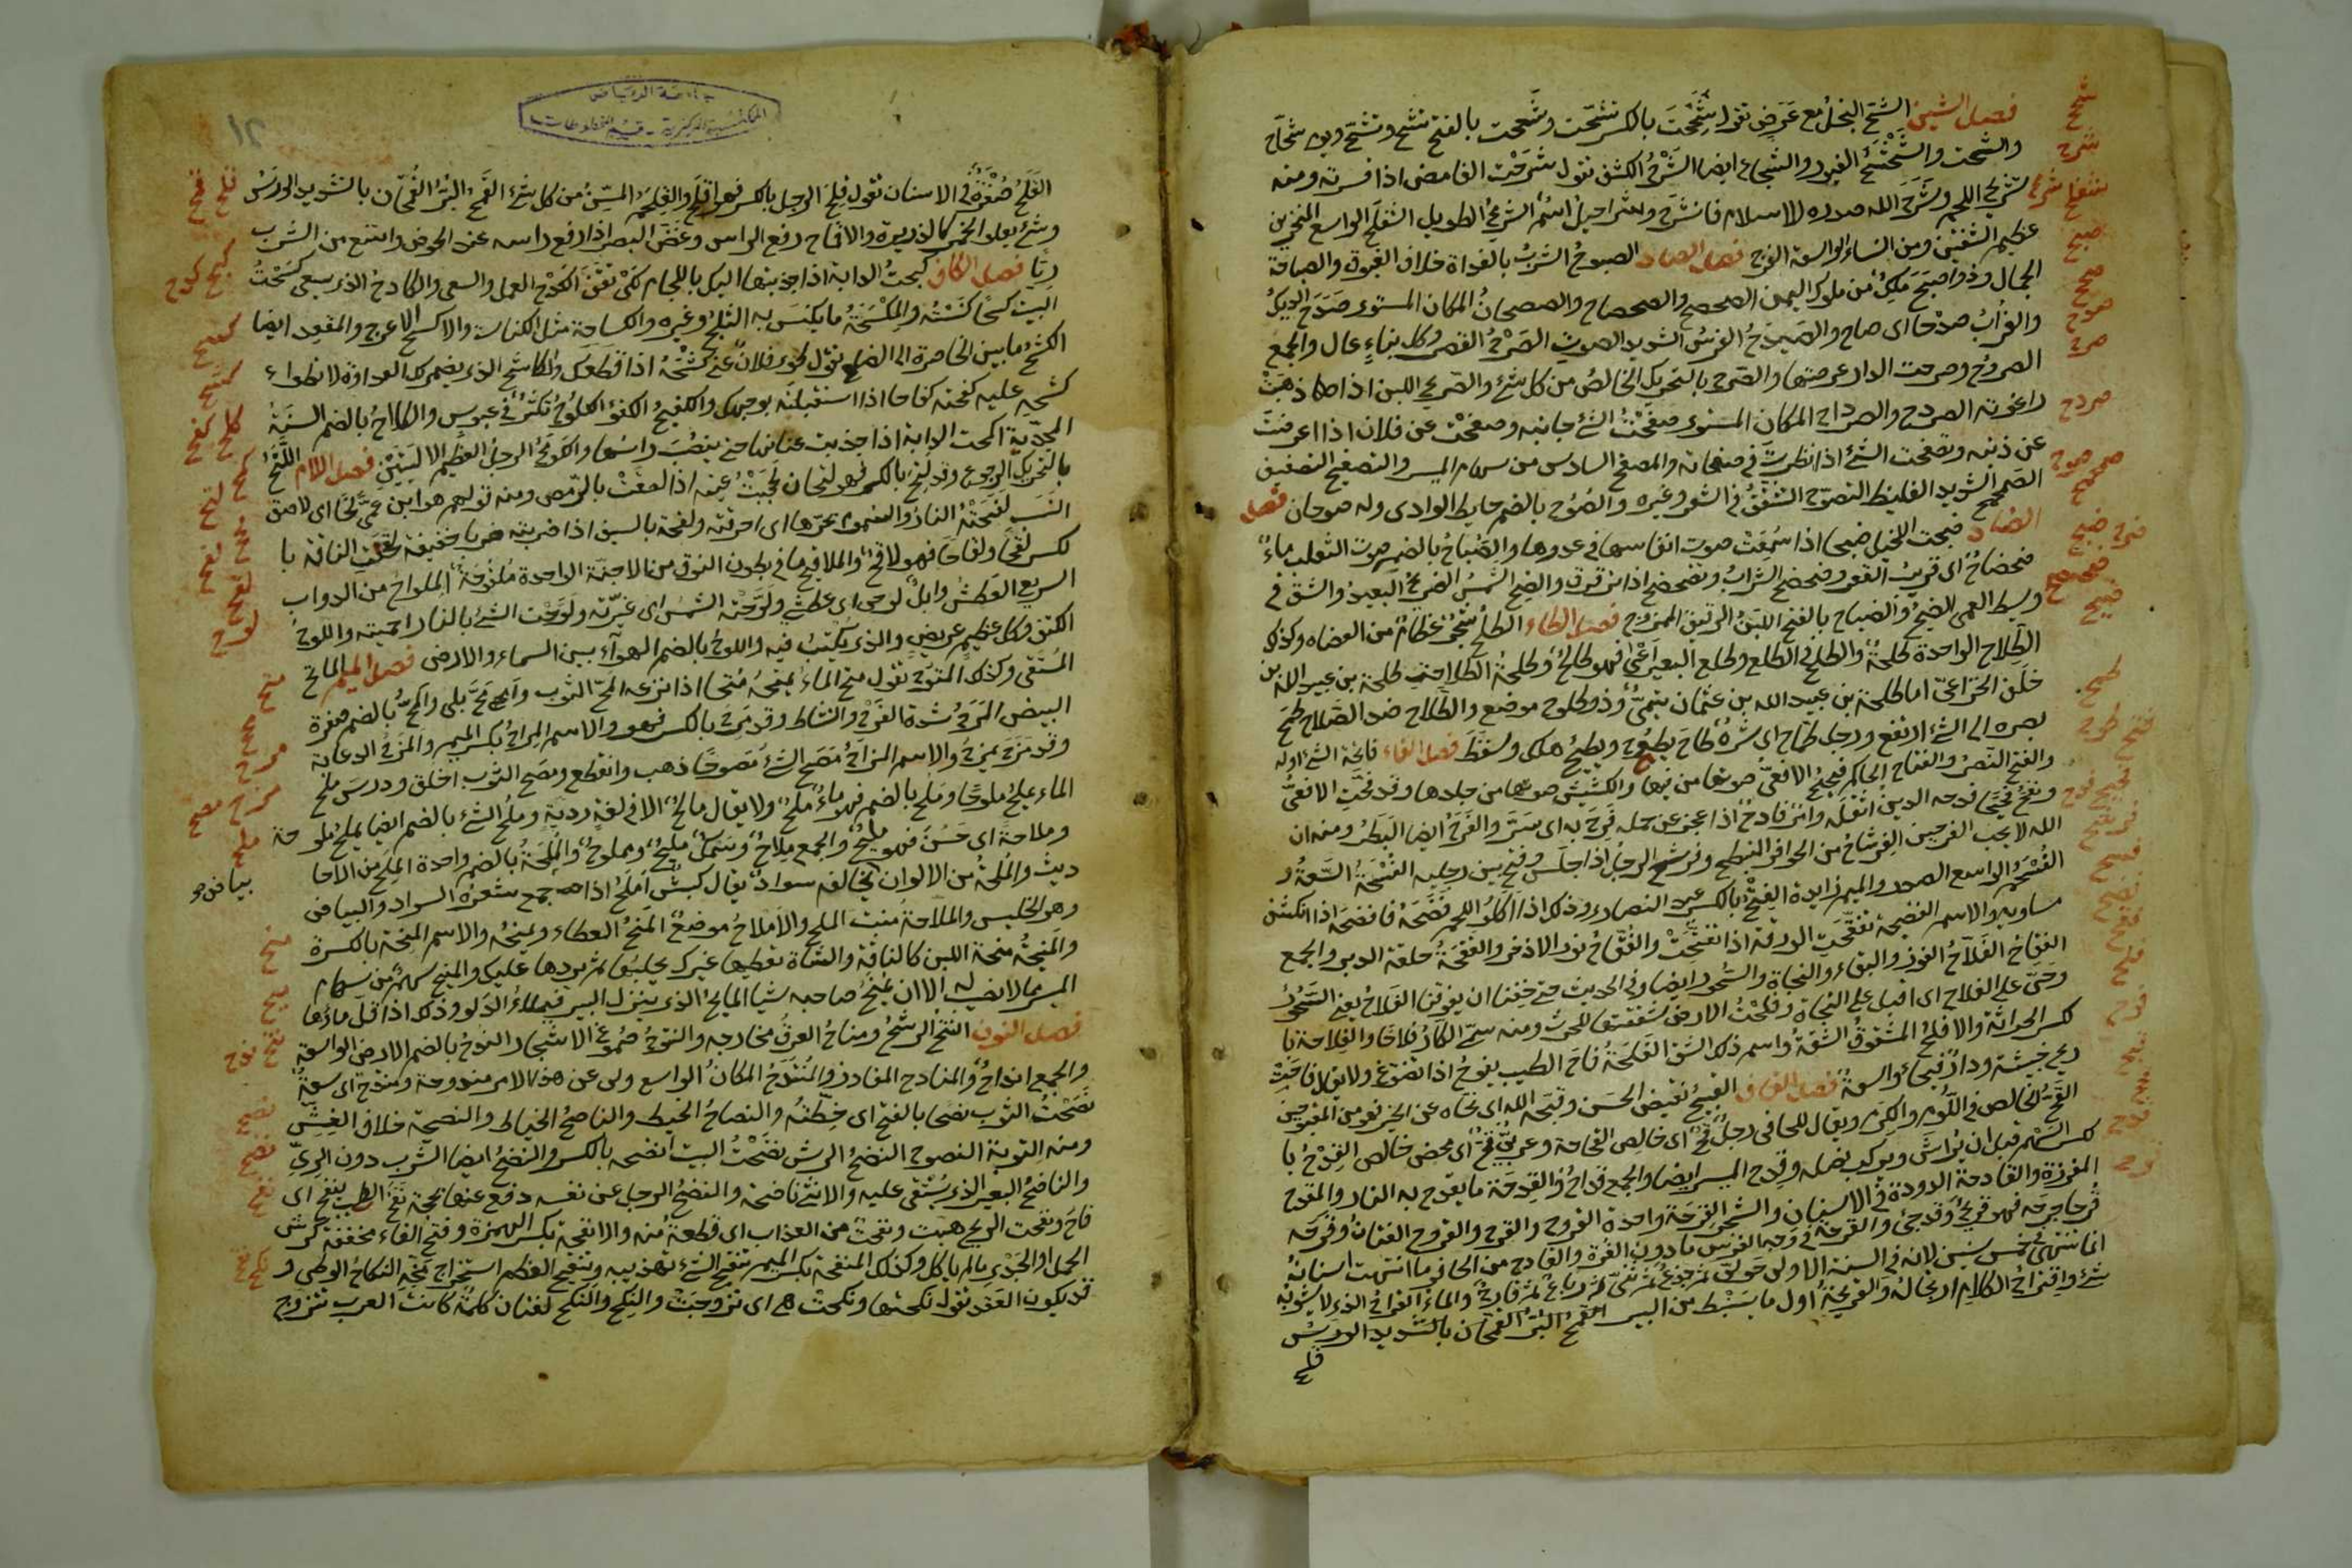 فصل الشين الشح البخل مع حرص تقول شححت بالكسر تشح وشححت بالفتح تشح وتشح
والشحشح الغيور والشجاع ايضا الشرح الكشف تقول شرحت الغامض اذا فسرته ومنه
تشريح اللحم وشرح الله صدره للاسلام فانشرح وشراحيل اسم الطويل الشفلح الواسع المنخرين
عظيم الشفتين ومن النساء الواسعة الفرج فصل الصاد الصبوح الشرب بالغداة خلاف الغبوق والصباحة
الجمال وذو اصبح ملك من ملوك اليمن الصحصح والصحصاح والصحصحان المكان المستوى صدح الديك
والغراب صدحا اى صاح والصيدح الفرس الشديد الصوت الصرح القصر وكل بناء عال والجمع
الصروح وصرحت الدار عرصتها والصرح بالتحريك الخالص من كل شئ والصريح اللبن اذا ذهبت
رغوته الصردح والصرداح المكان المستوى صفحت الشئ جانبه وصفحت عن فلان اذا اعرضت
عن ذنبه وتصفحت الشئ اذا نظرت فى صفحاته والمصفح السادس من سهام الميسر والتصفيح التصفيق
الصمحمح الشديد الغليظ التصوح التشقق فى الشعر وغيره والصوح بالضم حايط الوادى وله صوحان فصل
الضاد ضبحت الخيل ضبحا اذا سمعت صوت انفاسها فى عدوها والضباح بالضم صوت الثعلب ماء
ضحضاح اى قريب القعر وضحضح السراب وتضحضح اذا ترقرق والضح الشمس الضريح البعيد والشق فى
وسط القبر الضيح والضياح بالفتح اللبن الرقيق الممزوج فصل الطاء الطلح شجر عظام من العضاه وكذلك
الطلاح الواحدة طلحة والطلح فى الطلع وطلح البعير اعى فهو طالح وطلحة الطلحات طلحة بن عبيد الله بن
خلف الخزاعى اما طلحة بن عبيد الله بن عثمان فتيمى وذو طلوح موضع والطلاح ضد الصلاح طمح
بصره الى الشئ ارتفع ورجل طماح اى شره طاح يطوح ويطيح هلك وسقط فصل الفاء فاتحة الشئ اوله
والفتح النصر والفتاح الحاكم فحيح الافعى صوتها من فيها والكشيش صوتها من جلدها وقد فحت الافعى
وتفح فحيحا فدحه الدين اثقله وامر فادح اذا عجز عن حمله فرح به اى سر والفرح ايضا البطر ومنه ان
الله لا يحب الفرحين الفرشاح من الحوافر المنبطح وفرشح الرجل اذا جلس وفتح بين رجليه الفسحة السعة و
الفسحم الواسع الصدر والميم زايدة الفصح بالكسر عيد النصارى وذلك اذا اكلوا اللحم فضحه فافتضح اذا انكشف
مساويه والاسم الفضيحة تفقحت الوردة اذا تفتحت والفقاح نور الاذخر والفقحة حلقة الدبر والجمع
الفقاح الفلاح الفوز والبقاء والنجاة والسحور ايضا وفى الحديث حتى خفنا ان يفوتنا الفلاح يعنى السحور
وحى على الفلاح اى اقبل على النجاة وفلحت الارض شققتها للحرث ومنه سمى الاكار فلاحا والفلاحة با
لكسر الحراثة والافلح المشقوق الشفة واسم ذلك الشق الفلحة فاح الطيب يفوح اذا تضوع ولا يقال فاحت
ريح خبيثة ودار فيحاء واسعة فصل القاف القبح نقيض الحسن وقبحه الله اى نحاه عن الخير فهو من المقبوحين
القح الخالص فى اللؤم والكرم ويقال للجافى رجل قح اى خالص القحاحة وعربى قح اى محض خالص القدح با
لكسر السهم قبل ان يراش ويركب نصله وقدح الميسر ايضا والجمع قداح والقدحة ما يقدح به النار والمقدح
المغرفة والقادحة الدودة فى الاسنان والشجر القرحة واحدة القروح والقرح والقروح لغتان وقرحه
قرحا جرحه فهو قريح وقرحى والقرحة فى وجه الفرس ما دون الغرة والقارح من الحافر ما انتهت اسنانه
انما تنتهى فى خمس سنين لانه فى السنة الاولى حولى ثم جذع ثم ثنى ثم رباع ثم قارح والماء القراح الذى لا يشوبه
شئ واقتراح الكلام ارتجاله والقريحة اول ما يستنبط من البير القمح البر القمحان بالتشديد الورس
قلح
جامعة الرياض
المكتبة المركزية - قسم المخطوطات
١٢
القلح صفرة فى الاسنان تقول قلح الرجل بالكسر فهو اقلح والقلحم المسن من كل شئ القمح البر القمحان بالتشديد الورس
وشئ يعلو الخمر كالذريرة والاقماح رفع الراس وغض البصر اذا رفع راسه عند الحوض وامتنع من الشرب
ريا فصل الكاف كبحت الدابة اذا جذبتها اليك باللجام لكى تقف الكدح العمل والسعى والكادح الذى يسعى كسحت
البيت كسحا كنسته والمكسحة ما يكنس به الثلج وغيره والكساحة مثل الكناسة والاكسح الاعرج والمقعد ايضا
الكشح ما بين الخاصرة الى الضلع تقول طوى فلان عنى كشحه اذا قطعك والكاشح الذى يضمر لك العداوة لانطواء
كشحه عليه كفحته كفاحا اذا استقبلته بوجهك والكفيح الكفؤ الكلوح تكشر فى عبوس والكلاح بالضم السنة
المجدبة اكمحت الدابة اذا جذبت عنانها حتى ينتصب راسها والكومح الرجل العظيم الاليتين فصل اللام اللتح
بالتحريك الجوع وقد لتح بالكسر فهو لتحان لححت عينه اذا لصقت بالرمص ومنه قولهم هو ابن عمى لحا اى لاصق
النسب لفحته النار والسموم بحرها اى احرقته ولفحه بالسيف اذا ضربته ضربا خفيفة لقحت الناقة با
لكسر لقحا ولقاحا فهو لاقح والملاقيح ما فى بطون النوق من الاجنة الواحدة ملقوحة الملواح من الدواب
السريع العطش وابل لوحى اى عطشى ولوحته الشمس اى غيرته ولوحت الشئ بالنار احميته واللوح
الكتف وكل عظيم عريض والذى يكتب فيه واللوح بالضم الهواء بين السماء والارض فصل الميم الماتح
المستقى وكذلك المتوح تقول متح الماء يمتحه متحا اذا نزعه المح الثوب وامح مح بلى والمح بالضم صفرة
البيض المرح شدة الفرح والنشاط وقد مرح بالكسر فهو والاسم المراح بكسر الميم والمزح الدعابة
وقد مزح يمزح والاسم المزاح مصح الشئ مصوحا ذهب وانقطع ومصح الثوب اخلق ودرس ملح
الماء يملح ملوحا وملح بالضم فهو ماء ملح ولا يقال مالح الا فى لغة ردية وملح الشئ بالضم ايضا يملح ملوحة
وملاحة اى حسن فهو مليح والجمع ملاح وسمك مليح ومملوح والملحة بالضم واحدة الملح من الاحا
ديث والملحة من الالوان بياض يخالفه سواد يقال كبش املح اذا جمع شعره السواد والبياض
وهو الخليس والملاحة منبت الملح والاملاح موضع المنح العطاء ويمنحه والاسم المنحة بالكسرة
والمنيحة منحة اللبن كالناقة والشاة تعطيها غيرك يحلبها ثم يردها عليك والمنيح سهم من سهام
الميسر مما لا نصيب له الا ان يمنح صاحبه شيا المايح الذى ينزل البير فيملاء الدلو وذلك اذا قل ماؤها
فصل النون النتح الرشح ومناتح العرق مخارجه والنتوح صموغ الاشجار الندح بالضم الارض الواسعة
والجمع انداح والمنادح المفاوز والمنتدح المكان الواسع ولى عن هذا الامر مندوحة ومنتدح اى سعة
نصحت الثوب نصحا بالفتح اى خطته والنصاح الخيط والناصح الخياط والنصيحة خلاف الغش
ومنه التوبة النصوح النضح الرش نضحت البيت انضحه بالكسر والنضح ايضا الشرب دون الرى
والناضح البعير الذى يستقى عليه والانثى ناضحة والنضح الرجل عن نفسه دفع عنها بحجة نفح الطيب ينفح اى
فاح ونفحت الريح هبت ونفحة من العذاب اى قطعة منه والانفحة بكسر الهمزة وفتح الفاء مخففة كرش
الحمل او الجدى ما لم ياكل وكذلك المنفحة بكسر الميم تنقيح الشئ تهذيبه وتنقيح العظم استخراج مخه النكاح الوطى و
قد يكون العقد تقول نكحتها ونكحت هى اى تزوجت والنكح والنكح لغتان كلمة كانت العرب تتزوج